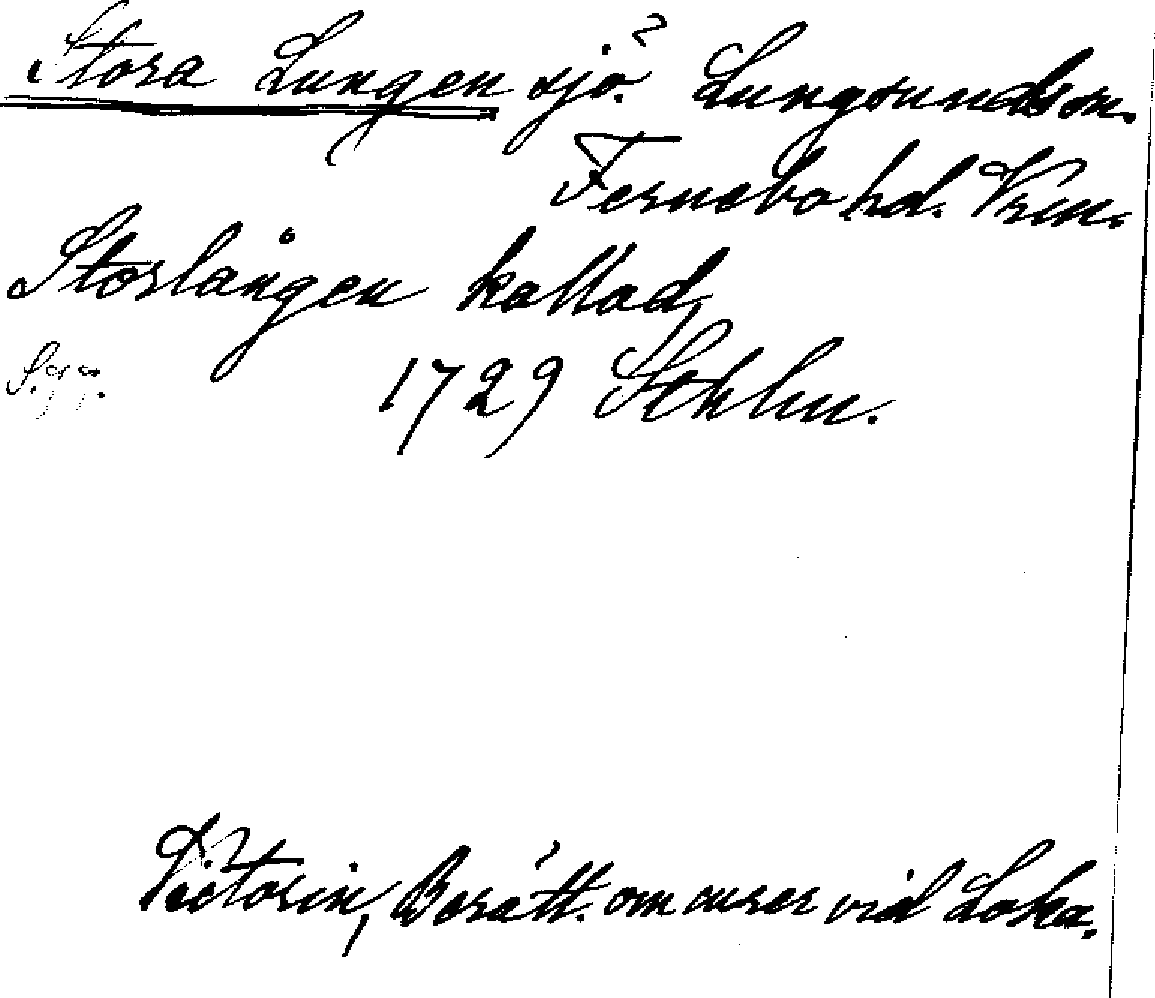 Stora Lungen sjö? Lungsunds sn.
Fernebo hd. Vrm.
Storlången kallad
S. 97. 1729 Sthlm.
Victorin, Berätt. om curer vid Loka.